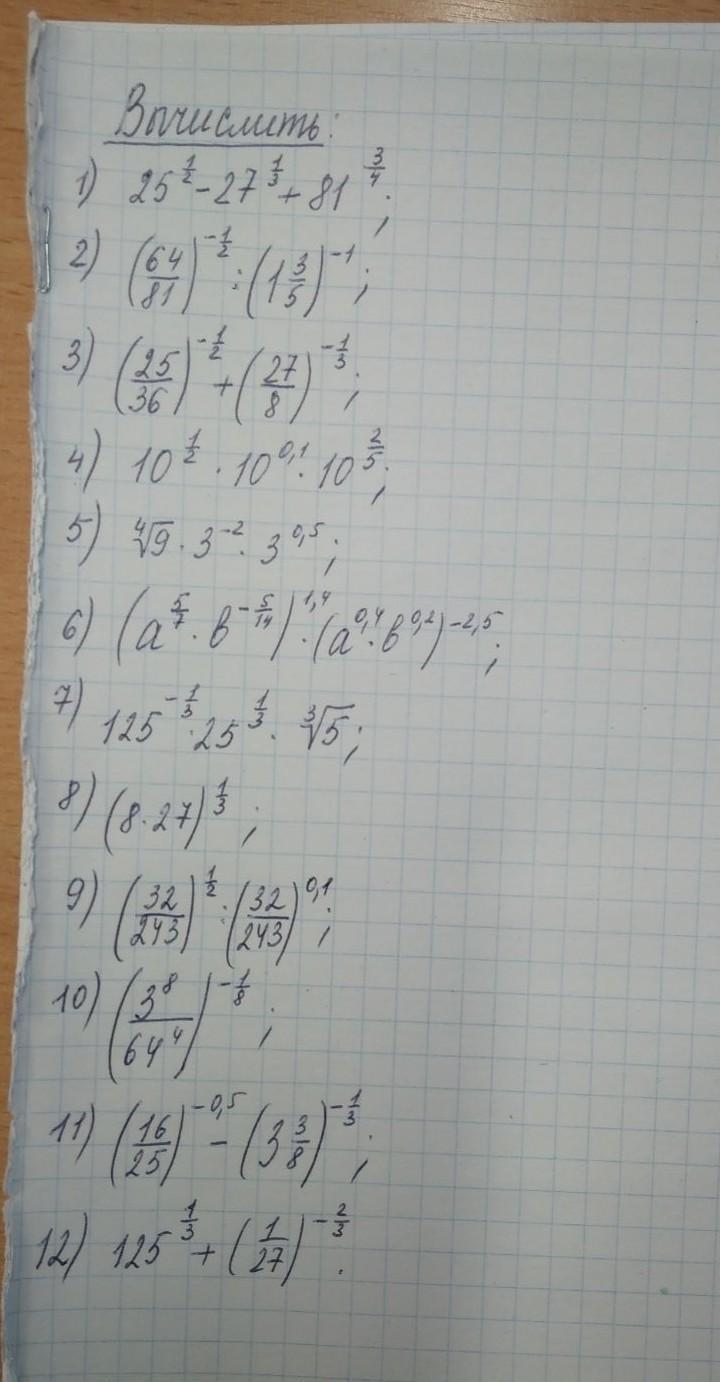 Вычислить:
1) 25^{\frac{1}{2}} - 27^{\frac{1}{3}} + 81^{\frac{3}{4}};
2) (\frac{64}{81})^{-\frac{1}{2}} : (1\frac{3}{5})^{-1};
3) (\frac{25}{36})^{-\frac{1}{2}} + (\frac{27}{8})^{-\frac{1}{3}};
4) 10^{\frac{1}{2}} · 10^{0,1} · 10^{\frac{2}{5}};
5) \sqrt[4]{9} · 3^{-2} · 3^{0,5};
6) (a^{\frac{5}{7}} · b^{-\frac{5}{14}})^{1,4} · (a^{0,4} · b^{0,2})^{-2,5};
7) 125^{-\frac{1}{3}} · 25^{\frac{1}{3}} · \sqrt[3]{5};
8) (8 · 27)^{\frac{1}{3}};
9) (\frac{32}{243})^{\frac{1}{2}} : (\frac{32}{243})^{0,1};
10) (\frac{3^8}{64^4})^{-\frac{1}{8}};
11) (\frac{16}{25})^{-0,5} - (3\frac{3}{8})^{-\frac{1}{3}};
12) 125^{\frac{1}{3}} + (\frac{1}{27})^{-\frac{2}{3}}.